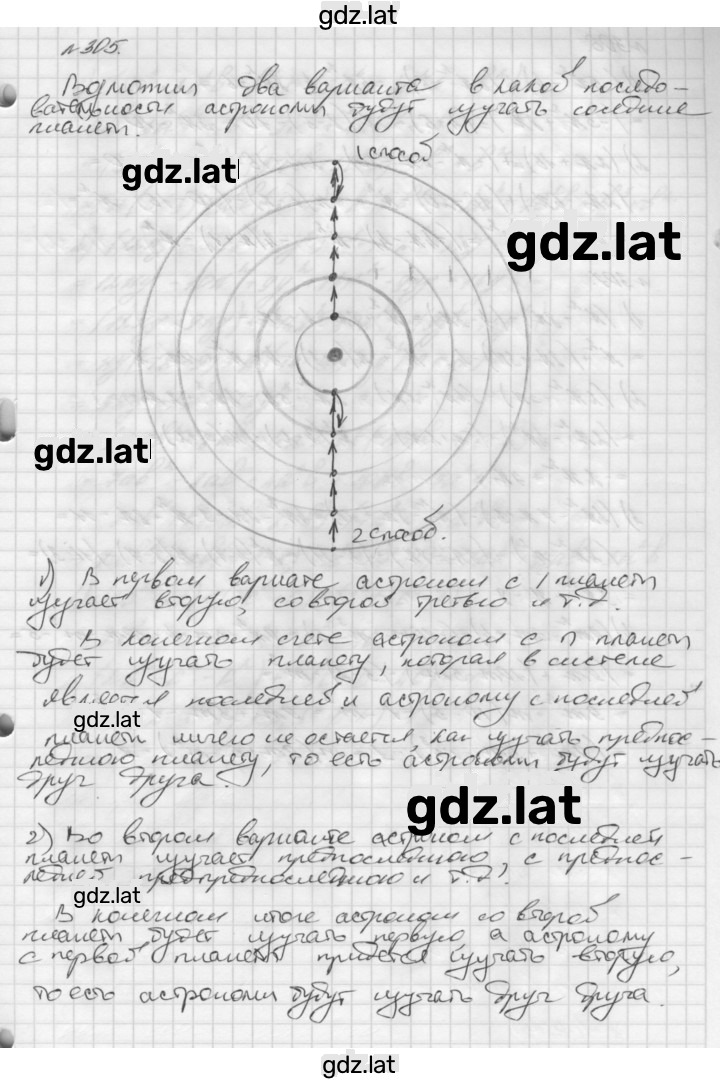 gdz.lat
№305.
Возможны два варианта в какой последо-
вательности астрономы будут изучать соседние
планеты.
1 способ
gdz.lat
gdz.lat
gdz.lat
2 способ.
1) В первом варианте астроном с 1 планеты
изучает вторую, со второй третью и т.д.
В конечном счете астроном с n планеты
будет изучать планету, которая в системе
является последней и астроному с последней
gdz.lat
планеты ничего не остается, как изучать предпос-
леднюю планету, то есть астрономы будут изучать
друг друга.
gdz.lat
2) Во втором варианте астроном с последней
планеты изучает предпоследнюю, с предпос-
ледней предпредпоследнюю и т.д.
gdz.lat
В конечном итоге астроном со второй
планеты будет изучать первую, а астроному
с первой планеты придется изучать вторую,
то есть астрономы будут изучать друг друга.
gdz.lat